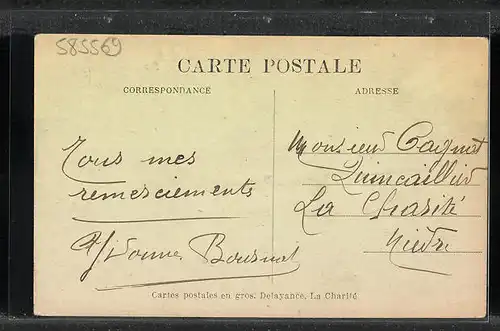 585569
CARTE POSTALE
CORRESPONDANCE
ADRESSE
Tous mes
remerciements
Yvonne
Monsieur Cagnat
Quincaillier
La Charité
Nièvre
Cartes postales en gros. Delayance. La Charité